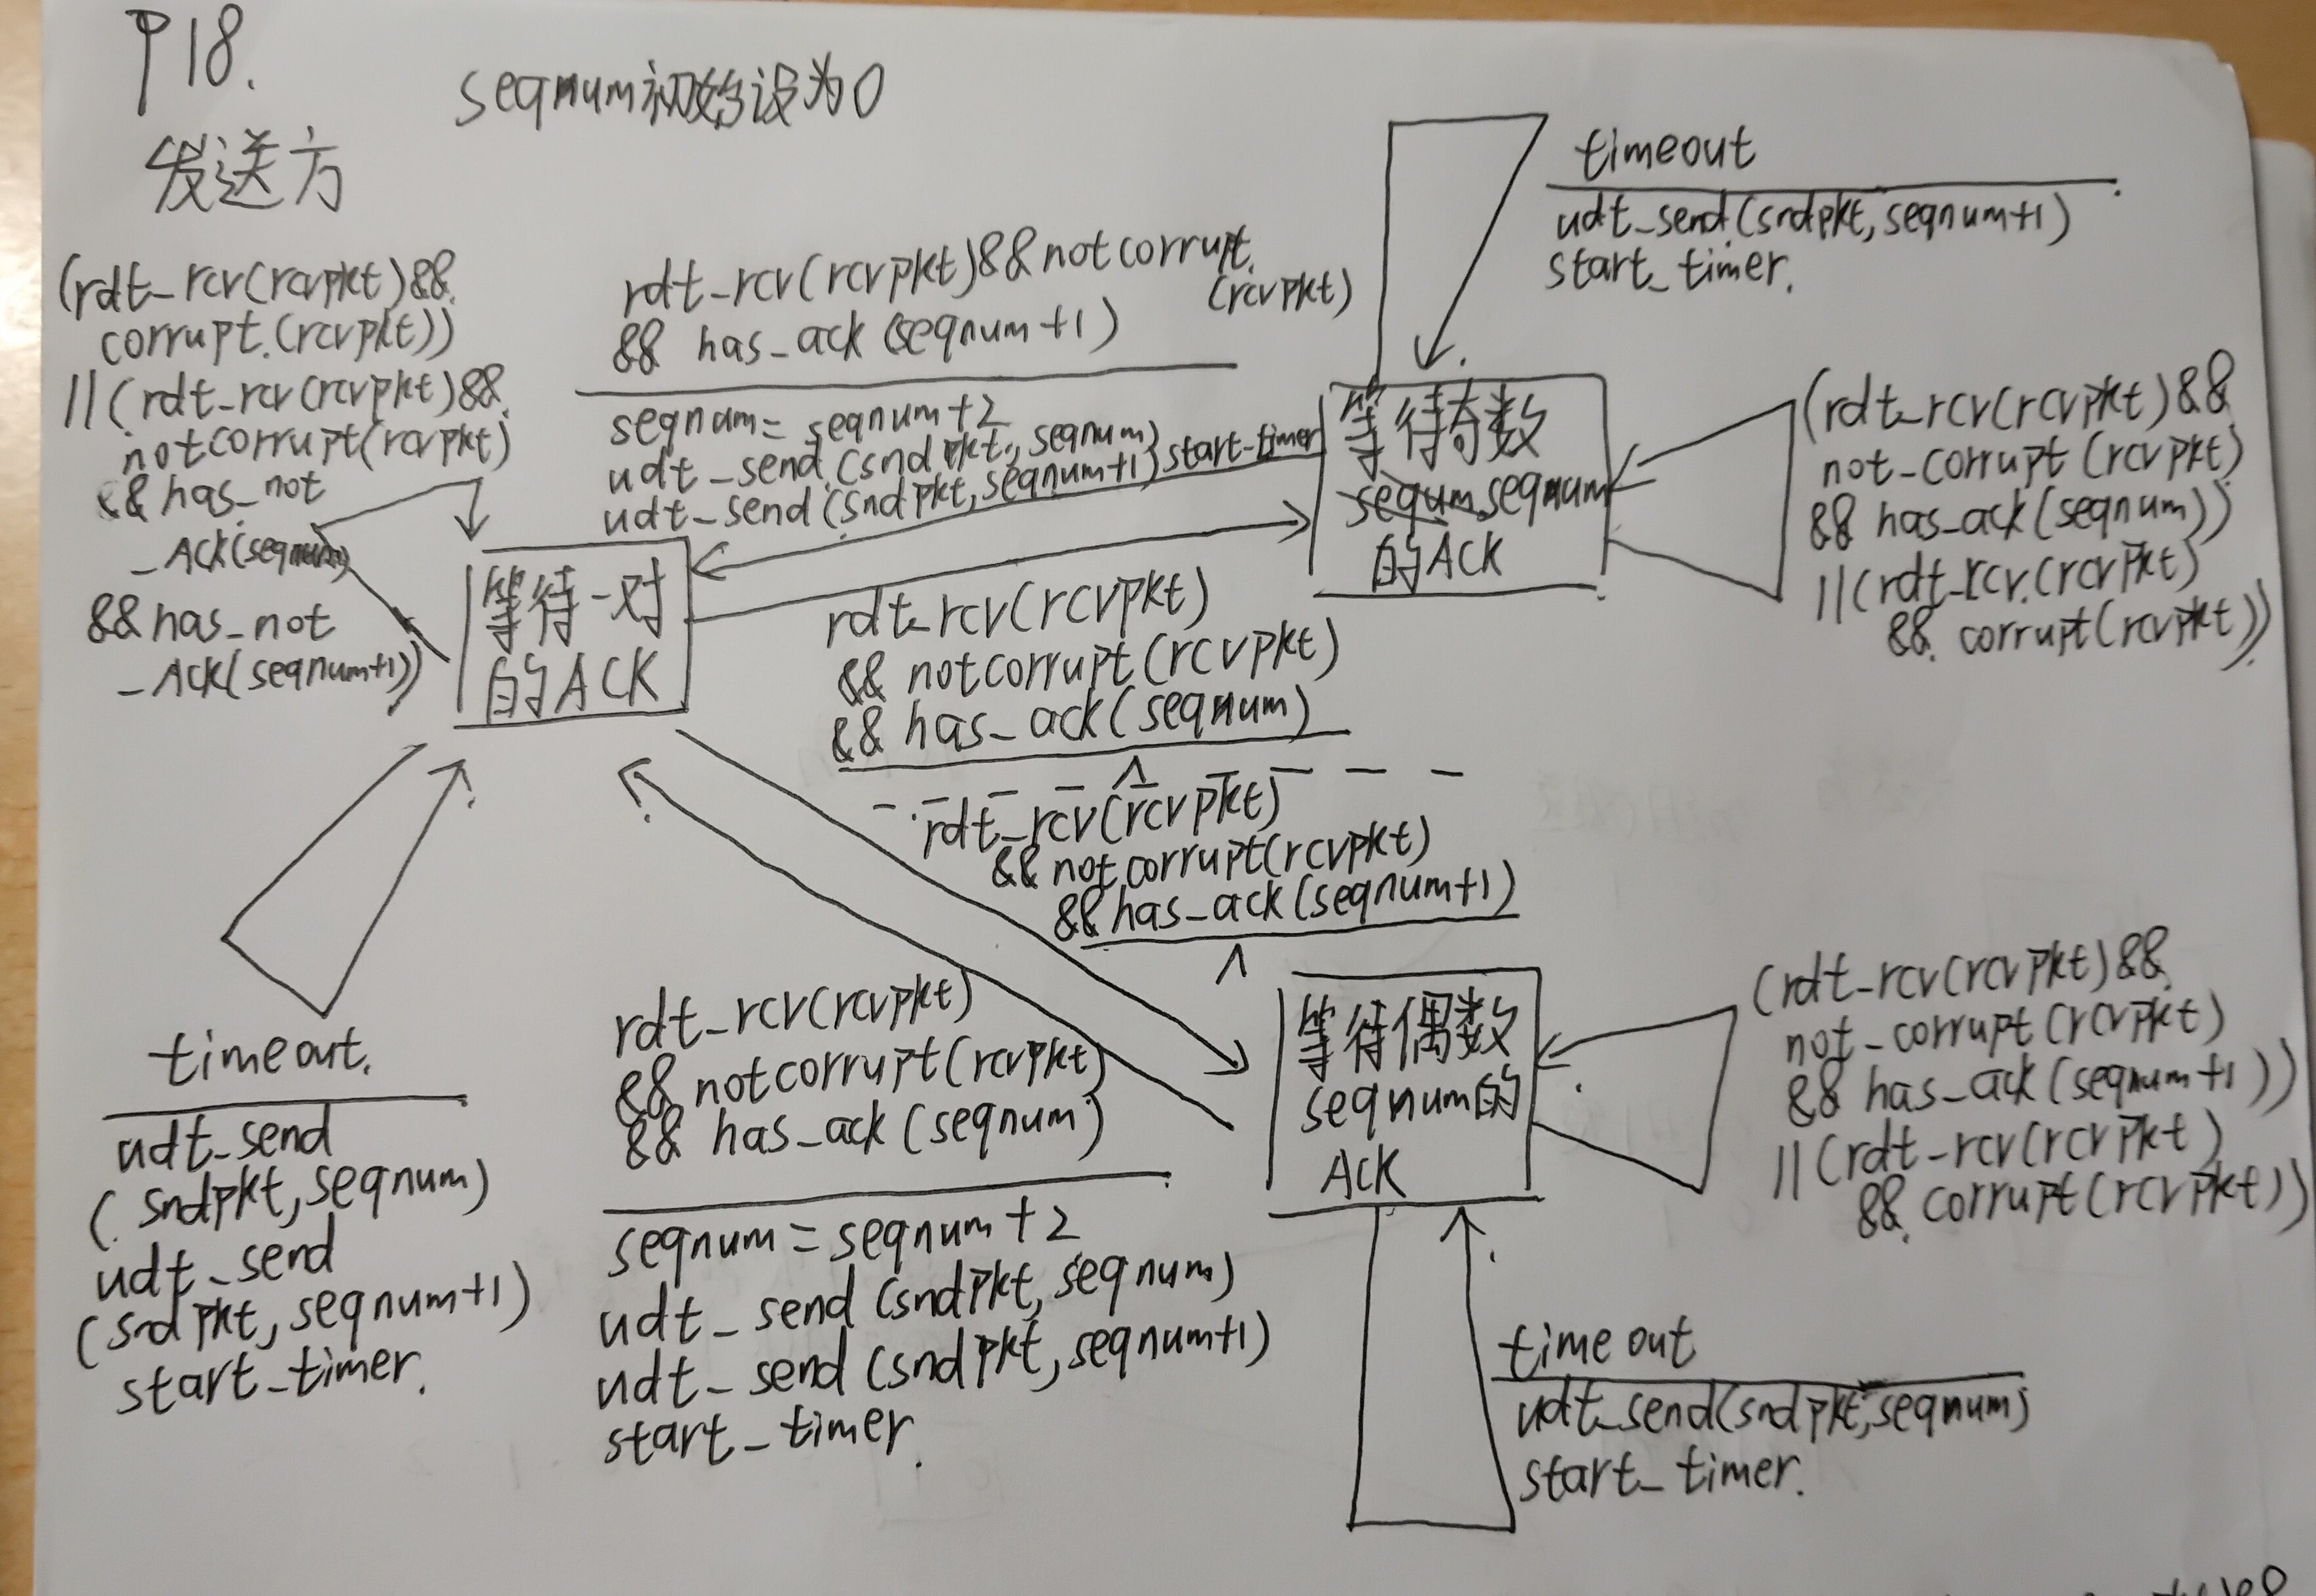 P18.
seqnum初始设为0
发送方
(rdt_rcv(rcvpkt)&&
corrupt.(rcvpkt))
||(rdt_rcv(rcvpkt)&&
notcorrupt(rcvpkt)
&& has_not
_ACK(seqnum)
&& has_not
_ACK(seqnum+1))
rdt_rcv(rcvpkt)&&notcorrupt
(rcvpkt)
&& has_ack(seqnum+1)
seqnum=seqnum+2
udt_send(sndpkt,seqnum)
udt_send(sndpkt,seqnum+1)start_timer
timeout
udt_send(sndpkt,seqnum+1)
start_timer.
等待奇数
seqnum
的ACK
(rdt_rcv(rcvpkt)&&
not_corrupt(rcvpkt)
&& has_ack(seqnum))
||(rdt_rcv.(rcvpkt)
&& corrupt(rcvpkt))
等待一对
的ACK
rdt_rcv(rcvpkt)
&& notcorrupt(rcvpkt)
&& has_ack(seqnum)
Λ
rdt_rcv(rcvpkt)
&&not corrupt(rcvpkt)
&&has_ack(seqnum+1)
Λ
timeout.
udt_send
(sndpkt,seqnum)
udt_send
(sndpkt,seqnum+1)
start_timer.
rdt_rcv(rcvpkt)
&& notcorrupt(rcvpkt)
&& has_ack(seqnum)
seqnum=seqnum+2
udt_send(sndpkt,seqnum)
udt_send(sndpkt,seqnum+1)
start_timer.
等待偶数
seqnum的
ACK
(rdt_rcv(rcvpkt)&&
not_corrupt(rcvpkt)
&& has_ack(seqnum+1))
||(rdt_rcv(rcvpkt)
&& corrupt(rcvpkt))
timeout
udt_send(sndpkt,seqnum)
start_timer.